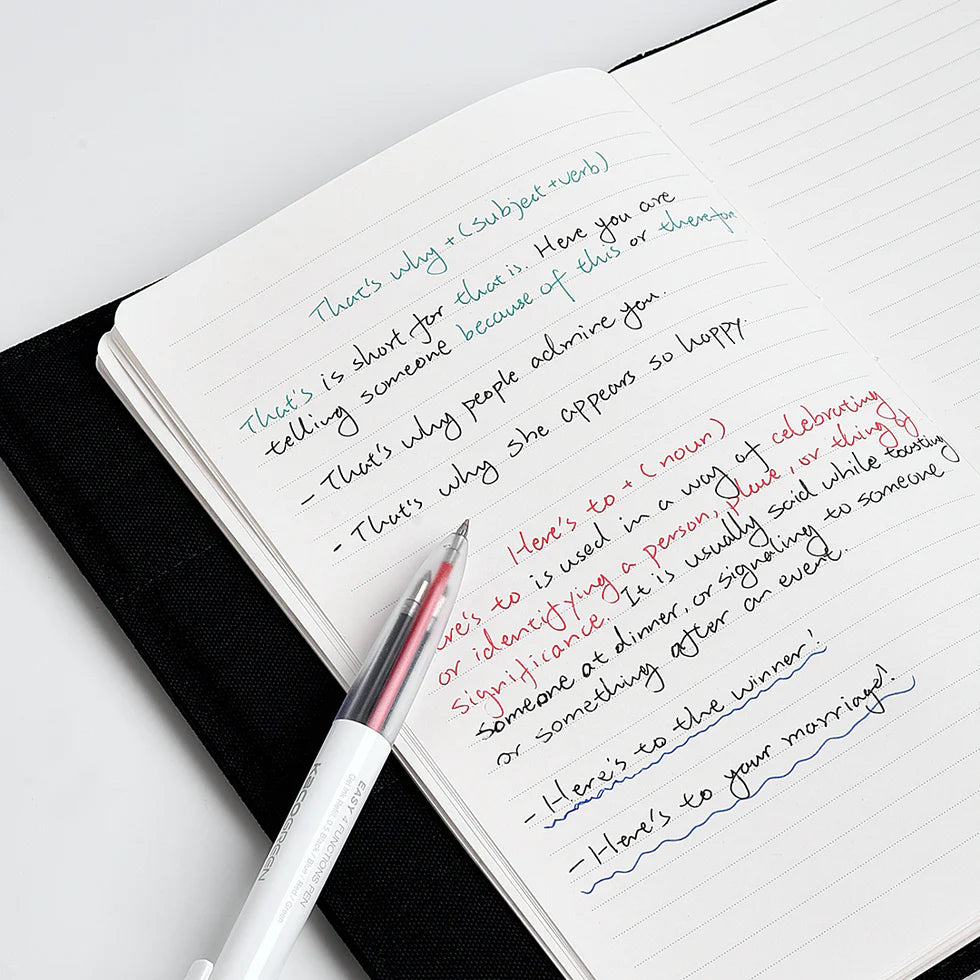 That's why + (Subject + verb)
That's is short for that is. Here you are
telling someone because of this or therefor
- That's why people admire you.
- That's why she appears so happy.
Here's to + (noun)
ere's to is used in a way of celebrating
or identifying a person, place, or thing of
significance. It is usually said while toasting
someone at dinner, or signaling to someone
or something after an event.
- Here's to the winner!
- Here's to your marriage!
KACOGREEN
EASY 4 FUNCTIONS PEN
Gel Ink Refill, 0.5 Black / Blue / Red / Green